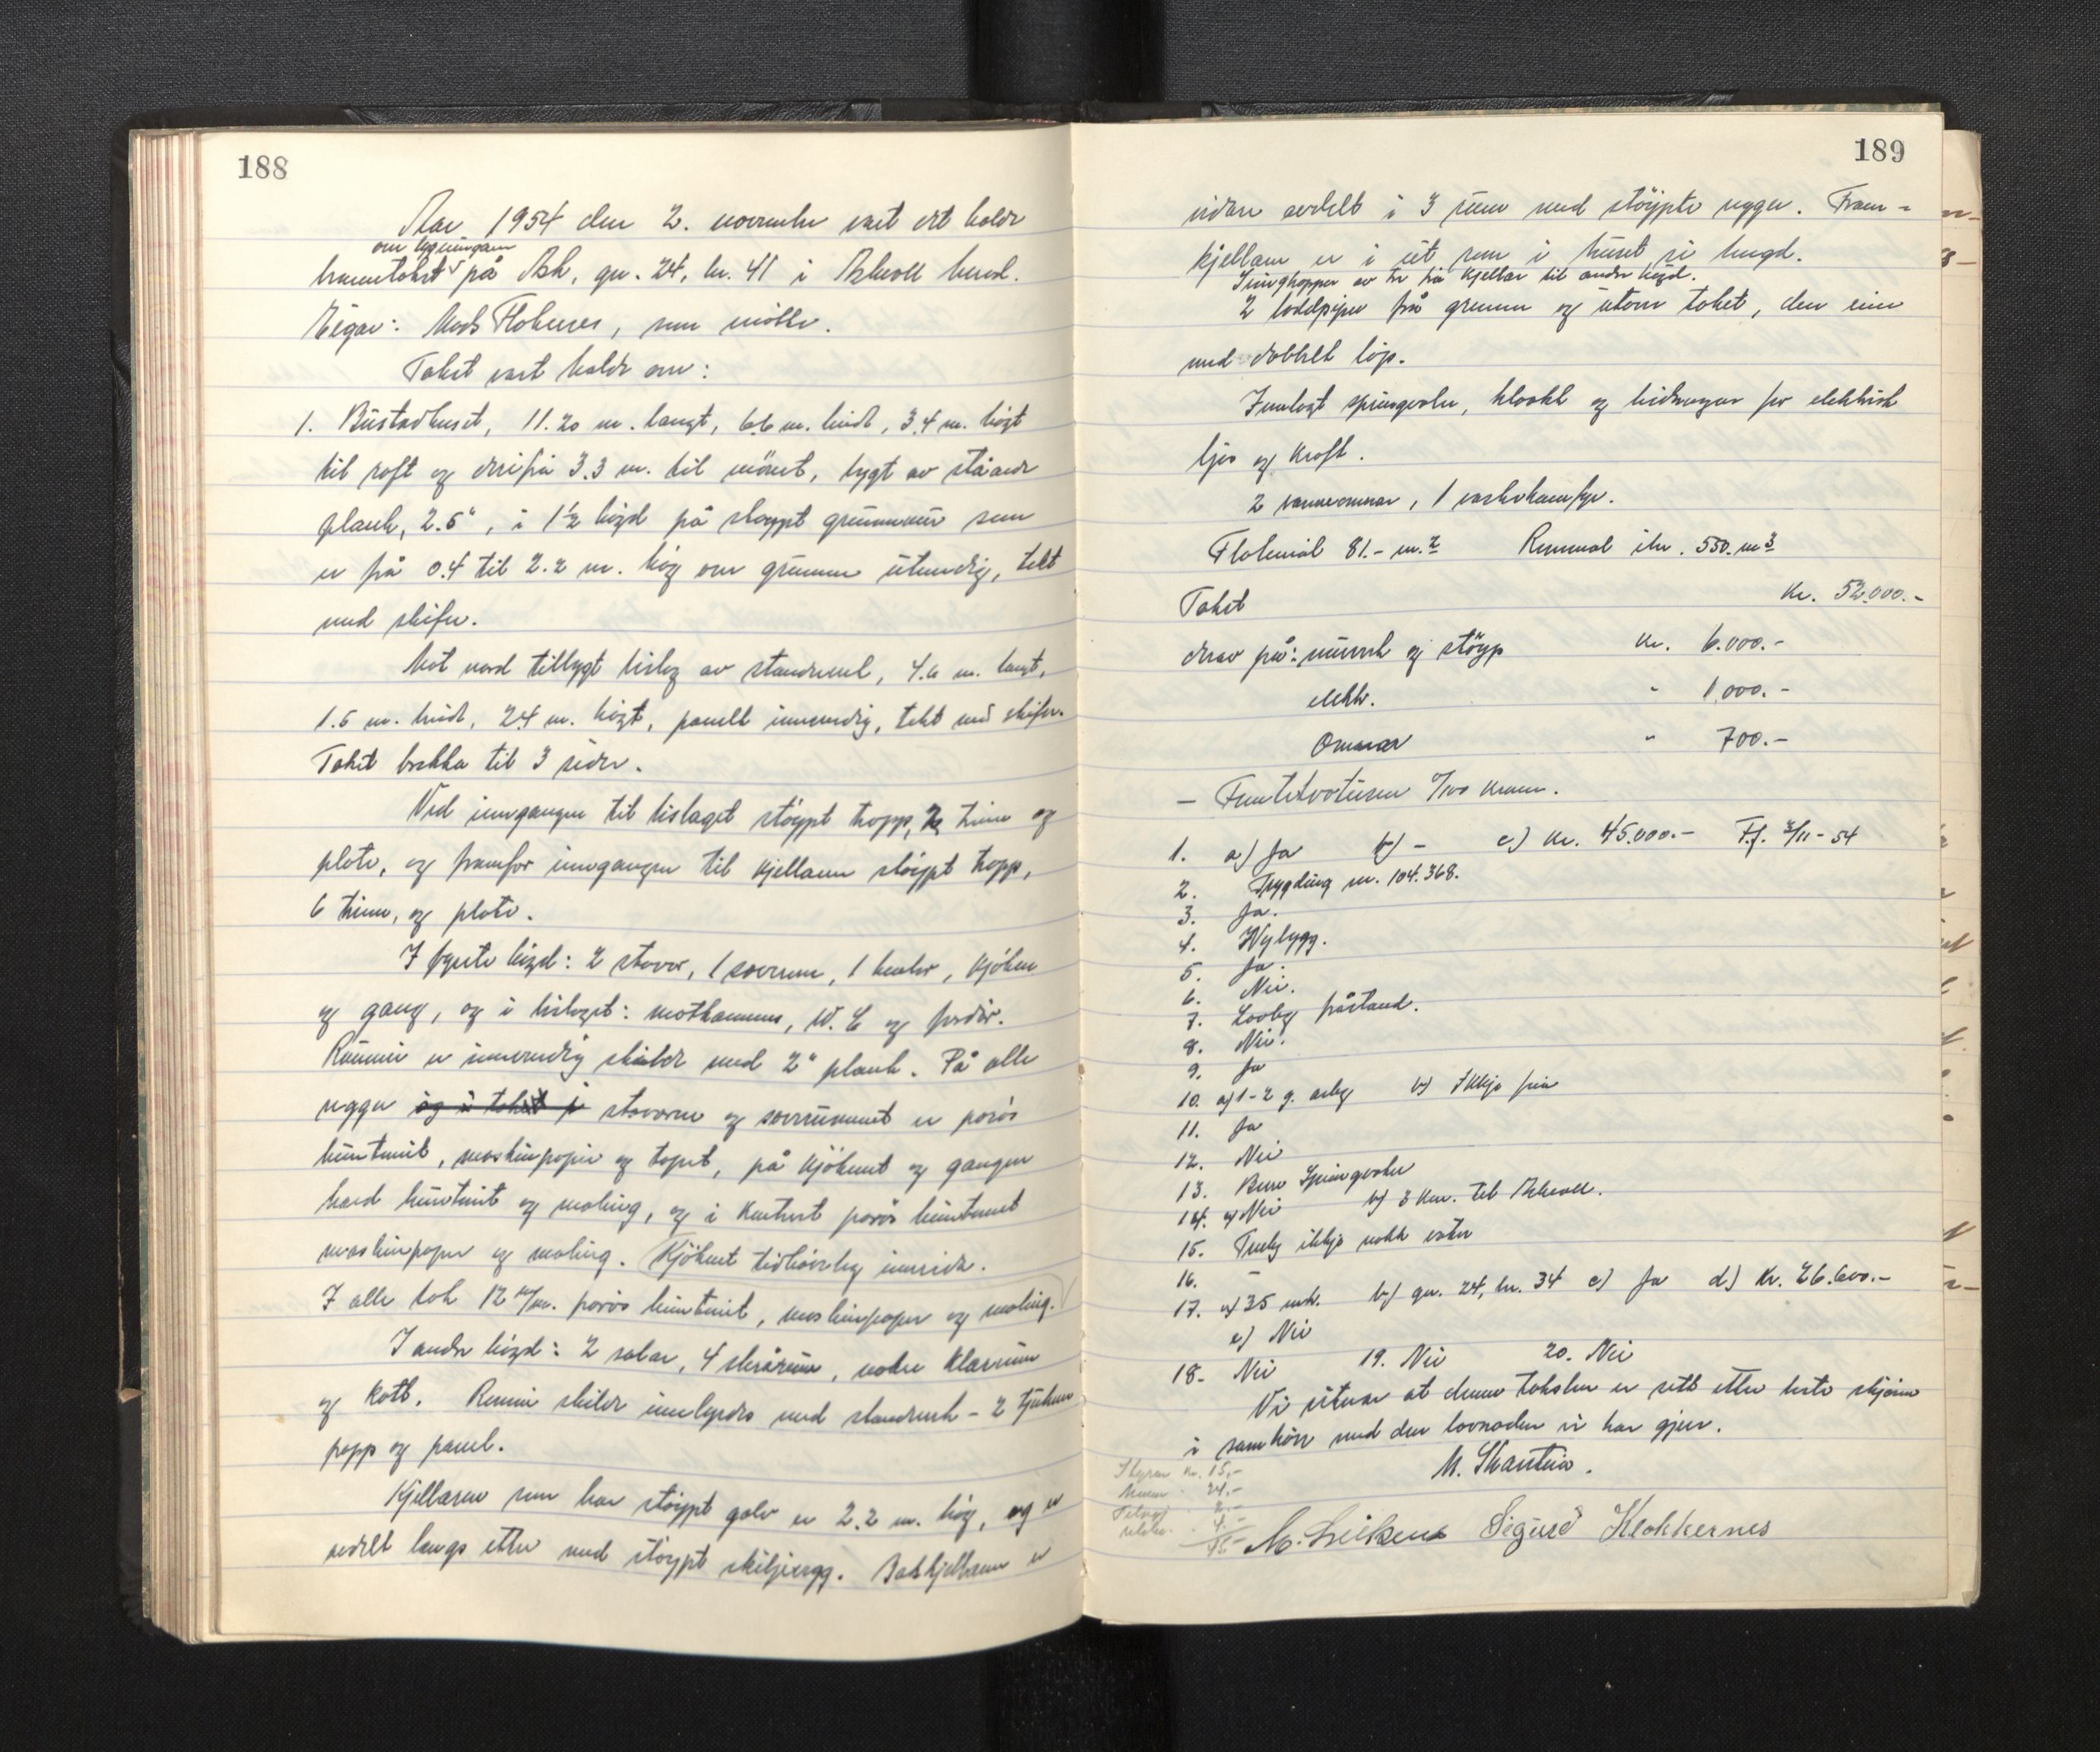 188
Aar 1954 den 2. november vart det halde
om bygningane
branntakst på Ask, gn. 24, br. 41 i Askvoll herad.
Eigar: Mads Flokenes, som møtte.
Takst vart halde over:
1. Bustadhuset, 11.20 m. langt, 6.6 m. breidt, 3.4 m. høgt
til raft og derifrå 3.3 m. til mønet, bygt av ståande
plank, 2.5", i 1½ høgd på støypt grunnmur som
er frå 0.4 til 2.2 m. høg over grunnen utvendig, tekt
med skifer.
Mot nord tilbygt bislag av standverk, 4.6 m. langt,
1.5 m. breidt, 2.4 m. høgt, panelt innvendig, tekt med skifer.
Taket brekka til 3 sider.
Ved inngangen til bislaget støypt trapp, 2 trinn og
plate, og framfor inngangen til kjellaren støypt trapp,
6 trinn, og plate.
I fyrste høgd: 2 stover, 1 soverum, 1 kontor, kjøken
og gang, og i bislaget: matkammers, W.C og fordør.
Rumi er innvendig skilde med 2" plank. På alle
vegger og i taket i stovorne og soverummet er porøs
huntonit, maskinpapir og tapet, på kjøkenet og gangen
hard huntonit og maling, og i kontoret porøs huntonit
maskinpapir og maling. Kjøkenet tidhøveleg innreidt.
I alle tak 12 m/m. porøs huntonit, maskinpapir og maling.
I andre høgd: 2 salar, 4 skrårum, nokre klærum
og kott. Rumi skilde innbyrdes med standverk - 2 tjukner
papp og panel.
Kjellaren som har støypt golv er 2.2 m. høg, og er
avdelt langs etter med støypt skiljevegg. Bakkjellaren er
189
vidare avdelt i 3 rum med støypte vegger. Fram-
kjellaren er i eit rum i huset si lengd.
Inngtrapper av tre frå kjellar til andre høgd.
2 teglpiper frå grunnen og utover taket, den eine
med dobbelt løp.
Innlagt springvatn, kloakk og leidningar for elektrisk
ljos og kraft.
2 vanne omnar, 1 vaskekomfyr.
Flatemål 81.- m.2 Rummål ibr. 550. m3
Takst Kr. 52.000.-
derav på: murverk og støyp Kr. 6.000.-
elektr. " 1.000.-
Omnar " 700.-
1. a) Ja b) - c) Kr. 45.000.- Ff. 2/11-54
2. Trygding nr. 104.368.
3. Ja.
4. Nybygg.
5. Ja.
6. Nei.
7. Lovleg påstand.
8. Nei.
9. Ja
10. a) 1-2 g. årleg b) Ikkje frie
11. Ja
12. Nei
13. Berre Springvatn
14. a) Nei b) 3 km. til Askvoll.
15. Truleg ikkje nokk vatn
16. -
17. a) 35 mtr. b) gn. 24, br. 34 c) Ja d) Kr. 26.600.-
e) Nei
18. Nei 19. Nei 20. Nei
Vi vitnar at denne taksten er sett etter beste skjøn
i samhøve med den lovnaden vi har gjeve.
M. Skarstein.
Kr. 15.-
24.-
M. Leiksens Sigurd Klokkernes